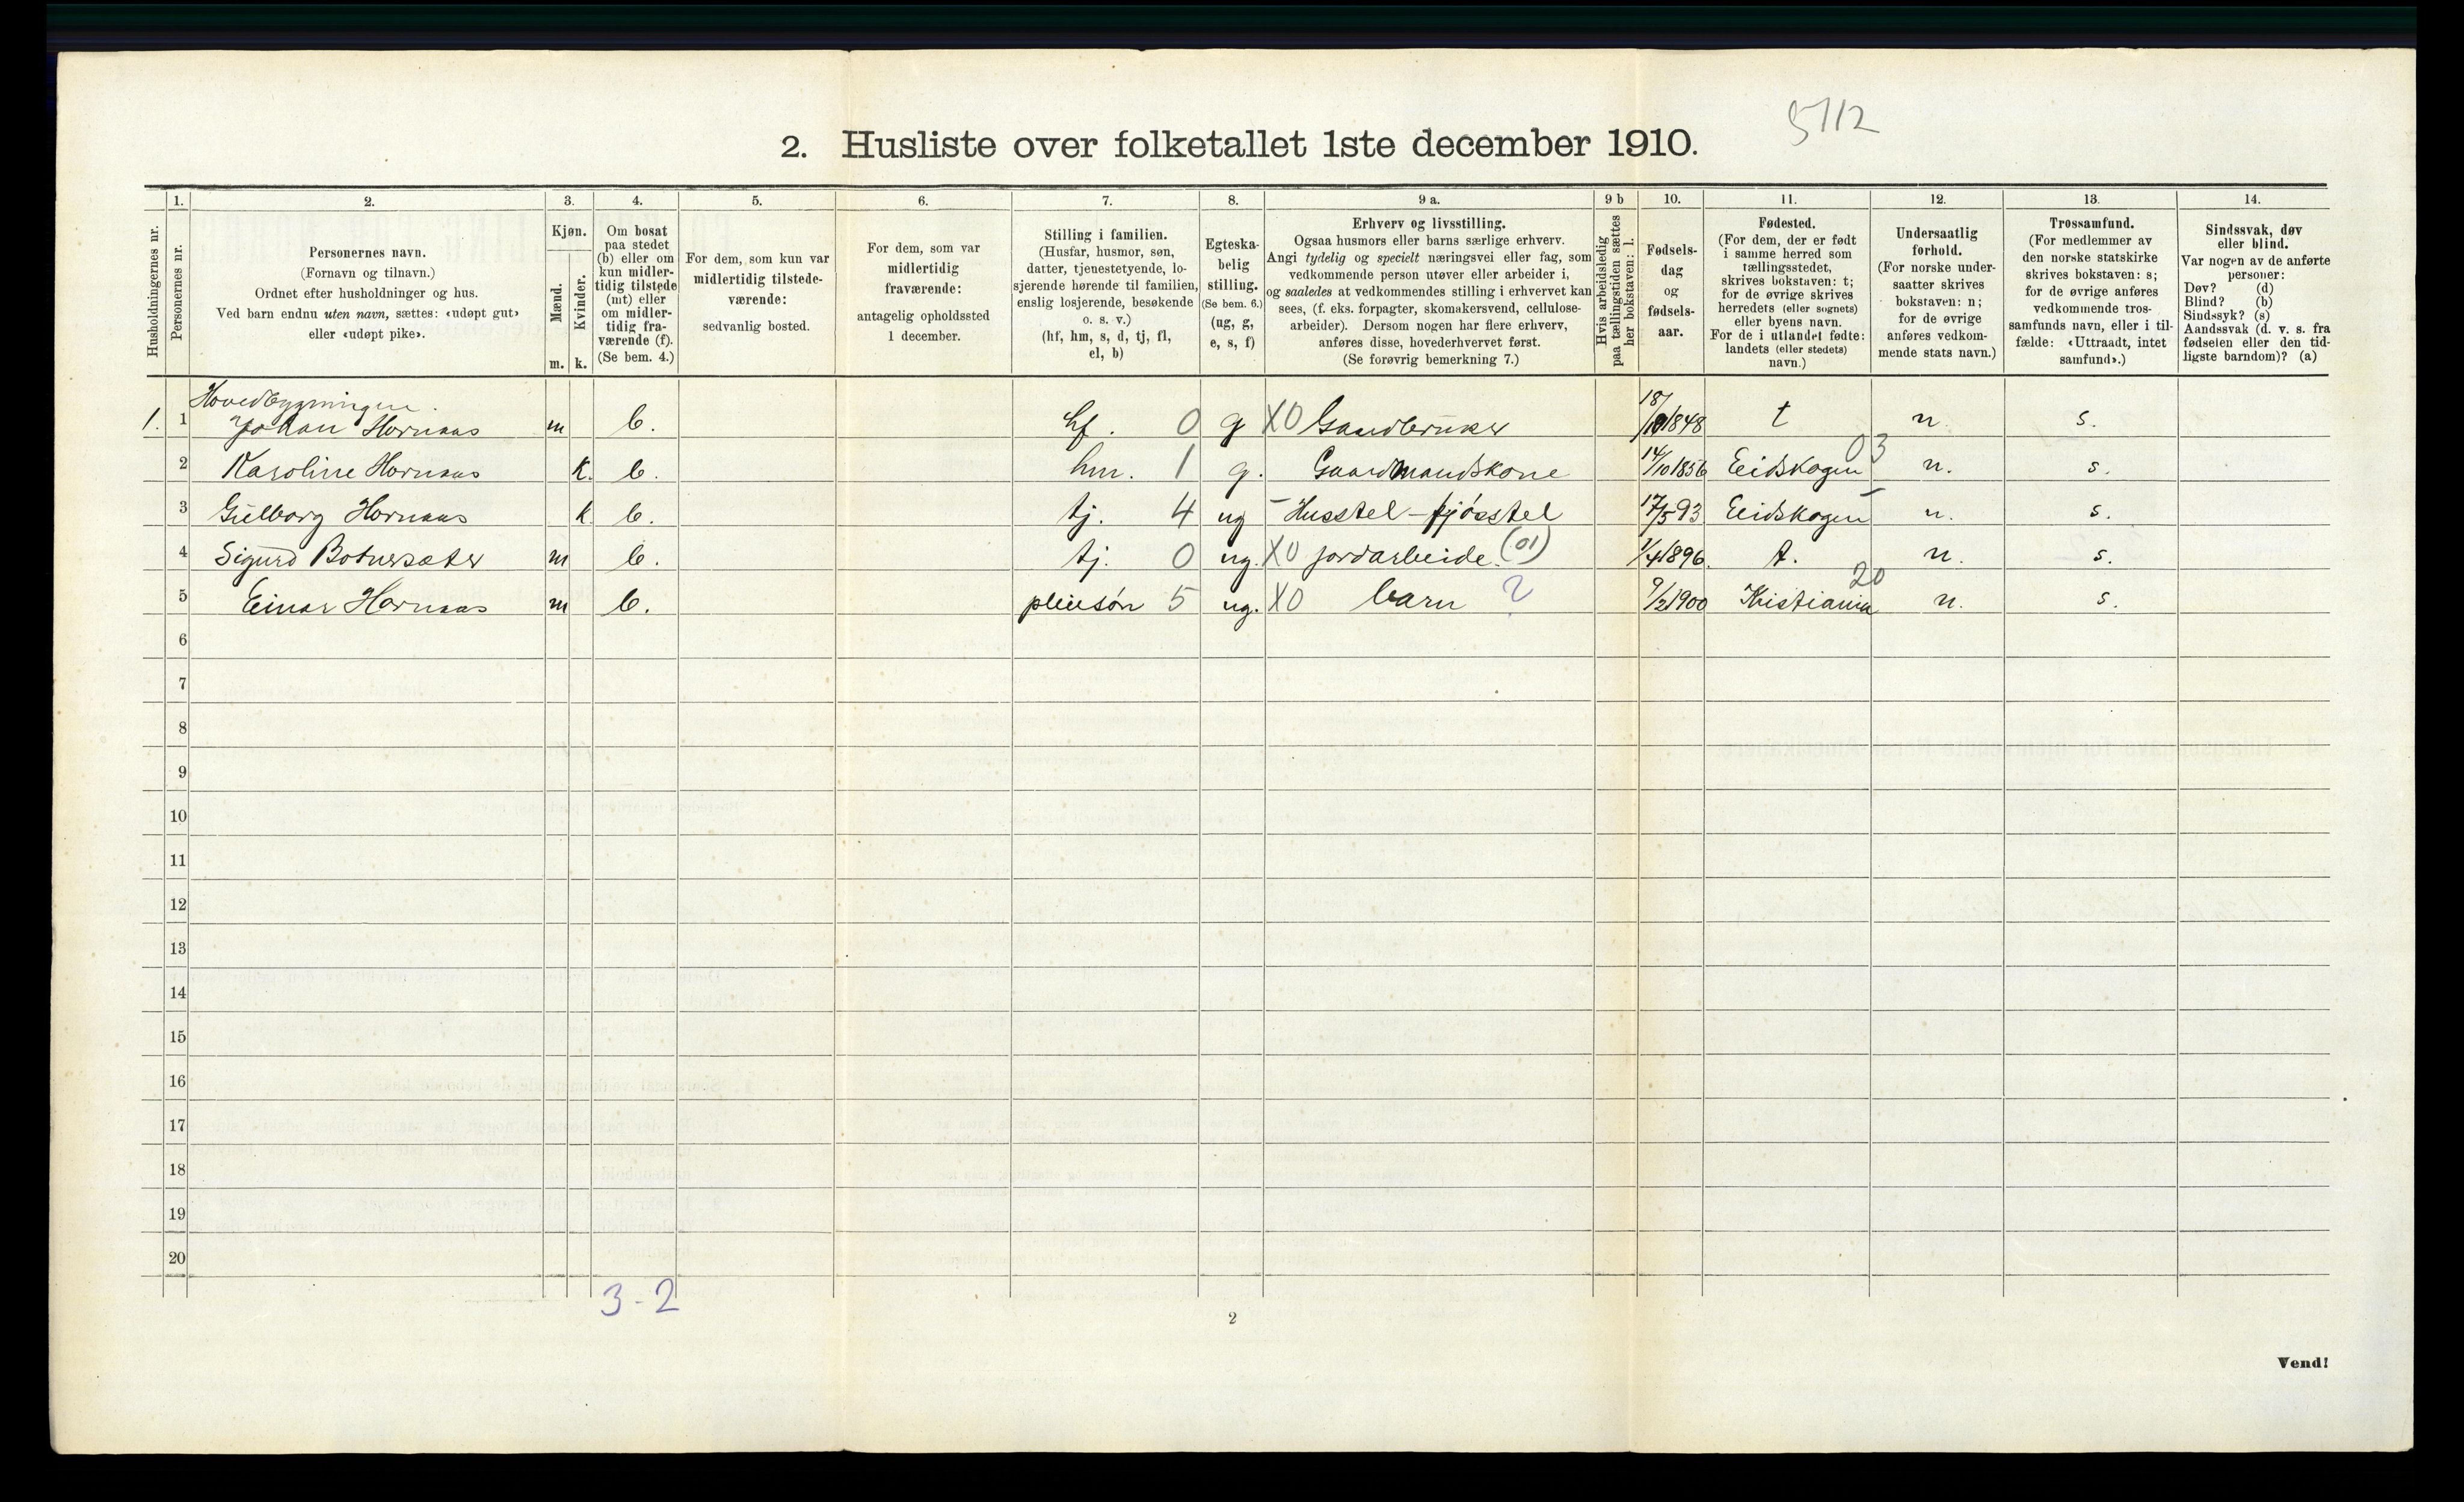 5112
2. Husliste over folketallet 1ste december 1910.
Husholdningernes nr.
1.
Personernes nr.
2.
Personernes navn.
(Fornavn og tilnavn.)
Ordnet efter husholdninger og hus.
Ved barn endnu uten navn, sættes: «udøpt gut»
eller «udøpt pike».
3.
Kjøn.
Mænd.
Kvinder.
m. k.
4.
Om bosat
paa stedet
(b) eller om
kun midler-
tidig tilstede
(mt) eller
om midler-
tidig fra-
værende (f).
(Se bem. 4.)
5.
For dem, som kun var
midlertidig tilstede-
værende:
sedvanlig bosted.
6.
For dem, som var
midlertidig
fraværende:
antagelig opholdssted
1 december.
7.
Stilling i familien.
(Husfar, husmor, søn,
datter, tjenestetyende, lo-
sjerende hørende til familien,
enslig losjerende, besøkende
o. s. v.)
(hf, hm, s, d, tj, fl,
el, b)
8.
Egteska-
belig
stilling.
(Se bem. 6.)
(ug, g,
e, s, f)
9 a.
Erhverv og livsstilling.
Ogsaa husmors eller barns særlige erhverv.
Angi tydelig og specielt næringsvei eller fag, som
vedkommende person utøver eller arbeider i,
og saaledes at vedkommendes stilling i erhvervet kan
sees, (f. eks. forpagter, skomakersvend, cellulose-
arbeider). Dersom nogen har flere erhverv,
anføres disse, hovederhvervet først.
(Se forøvrig bemerkning 7.)
9 b
Hvis arbeidsledig
paa tællingstiden sættes
her bokstaven: l.
10.
Fødsels-
dag
og
fødsels-
aar.
11.
Fødested.
(For dem, der er født
i samme herred som
tællingsstedet,
skrives bokstaven: t;
for de øvrige skrives
herredets (eller sognets)
eller byens navn.
For de i utlandet fødte:
landets (eller stedets)
navn.)
12.
Undersaatlig
forhold.
(For norske under-
saatter skrives
bokstaven: n;
for de øvrige
anføres vedkom-
mende stats navn.)
13.
Trossamfund.
(For medlemmer av
den norske statskirke
skrives bokstaven: s;
for de øvrige anføres
vedkommende tros-
samfunds navn, eller i til-
fælde: «Uttraadt, intet
samfund».)
14.
Sindssvak, døv
eller blind.
Var nogen av de anførte
personer:
Døv? (d)
Blind? (b)
Sindssyk? (s)
Aandssvak (d. v. s. fra
fødselen eller den tid-
ligste barndom)? (a)
Hovedbygningen.
1. 1 Johan Hornaas m b. hf. 0 g X0 Gaardbruker 18/10 1848 t n. s.
2 Karoline Hornaas k. b. hm. 1 g. Gaardmandskone 14/10 1856 Eidskogen 03 n. s.
3 Gulborg Hornaas k b. tj. 4 ug - Husstel - fjøsstel 17/5 93 Eidskogen - n. s.
4 Sigurd Botnersæter m b. tj. 0 ug. X0 jordarbeide (01) 1/4 1896 t. n. s.
5 Einar Hornaas m b. pleiesøn 5 ug. X0 barn ? 9/2 1900 Kristiania 20 n. s.
6
7
8
9
10
11
12
13
14
15
16
17
18
19
20
3 - 2
2
Vend!